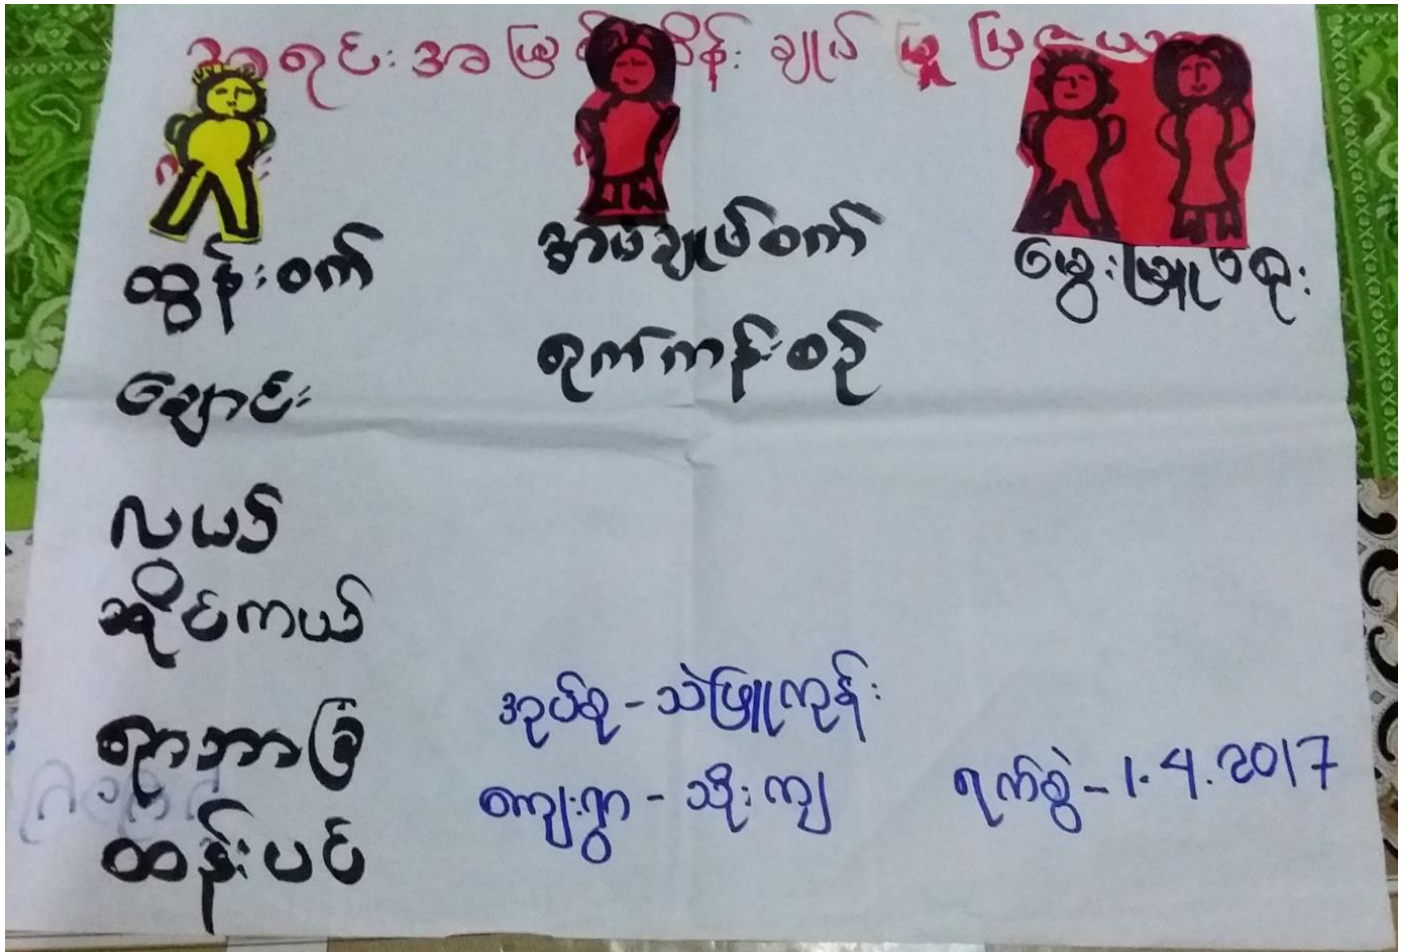 အရင်းအမြစ် ထိန်းချုပ်မှု ပြဇယား
ထွန်းစက်
ချောင်း
လယ်
ဆိုင်ကယ်
ရာဘာခြံ
ထန်းပင်
အပ်ချုပ်စက်
ရက်ကန်းစင်
မွေးမြူရေး
အုပ်စု - သဲဖြူကုန်း
ကျေးရွာ - သိုးကျ
ရက်စွဲ - 1.4.2017